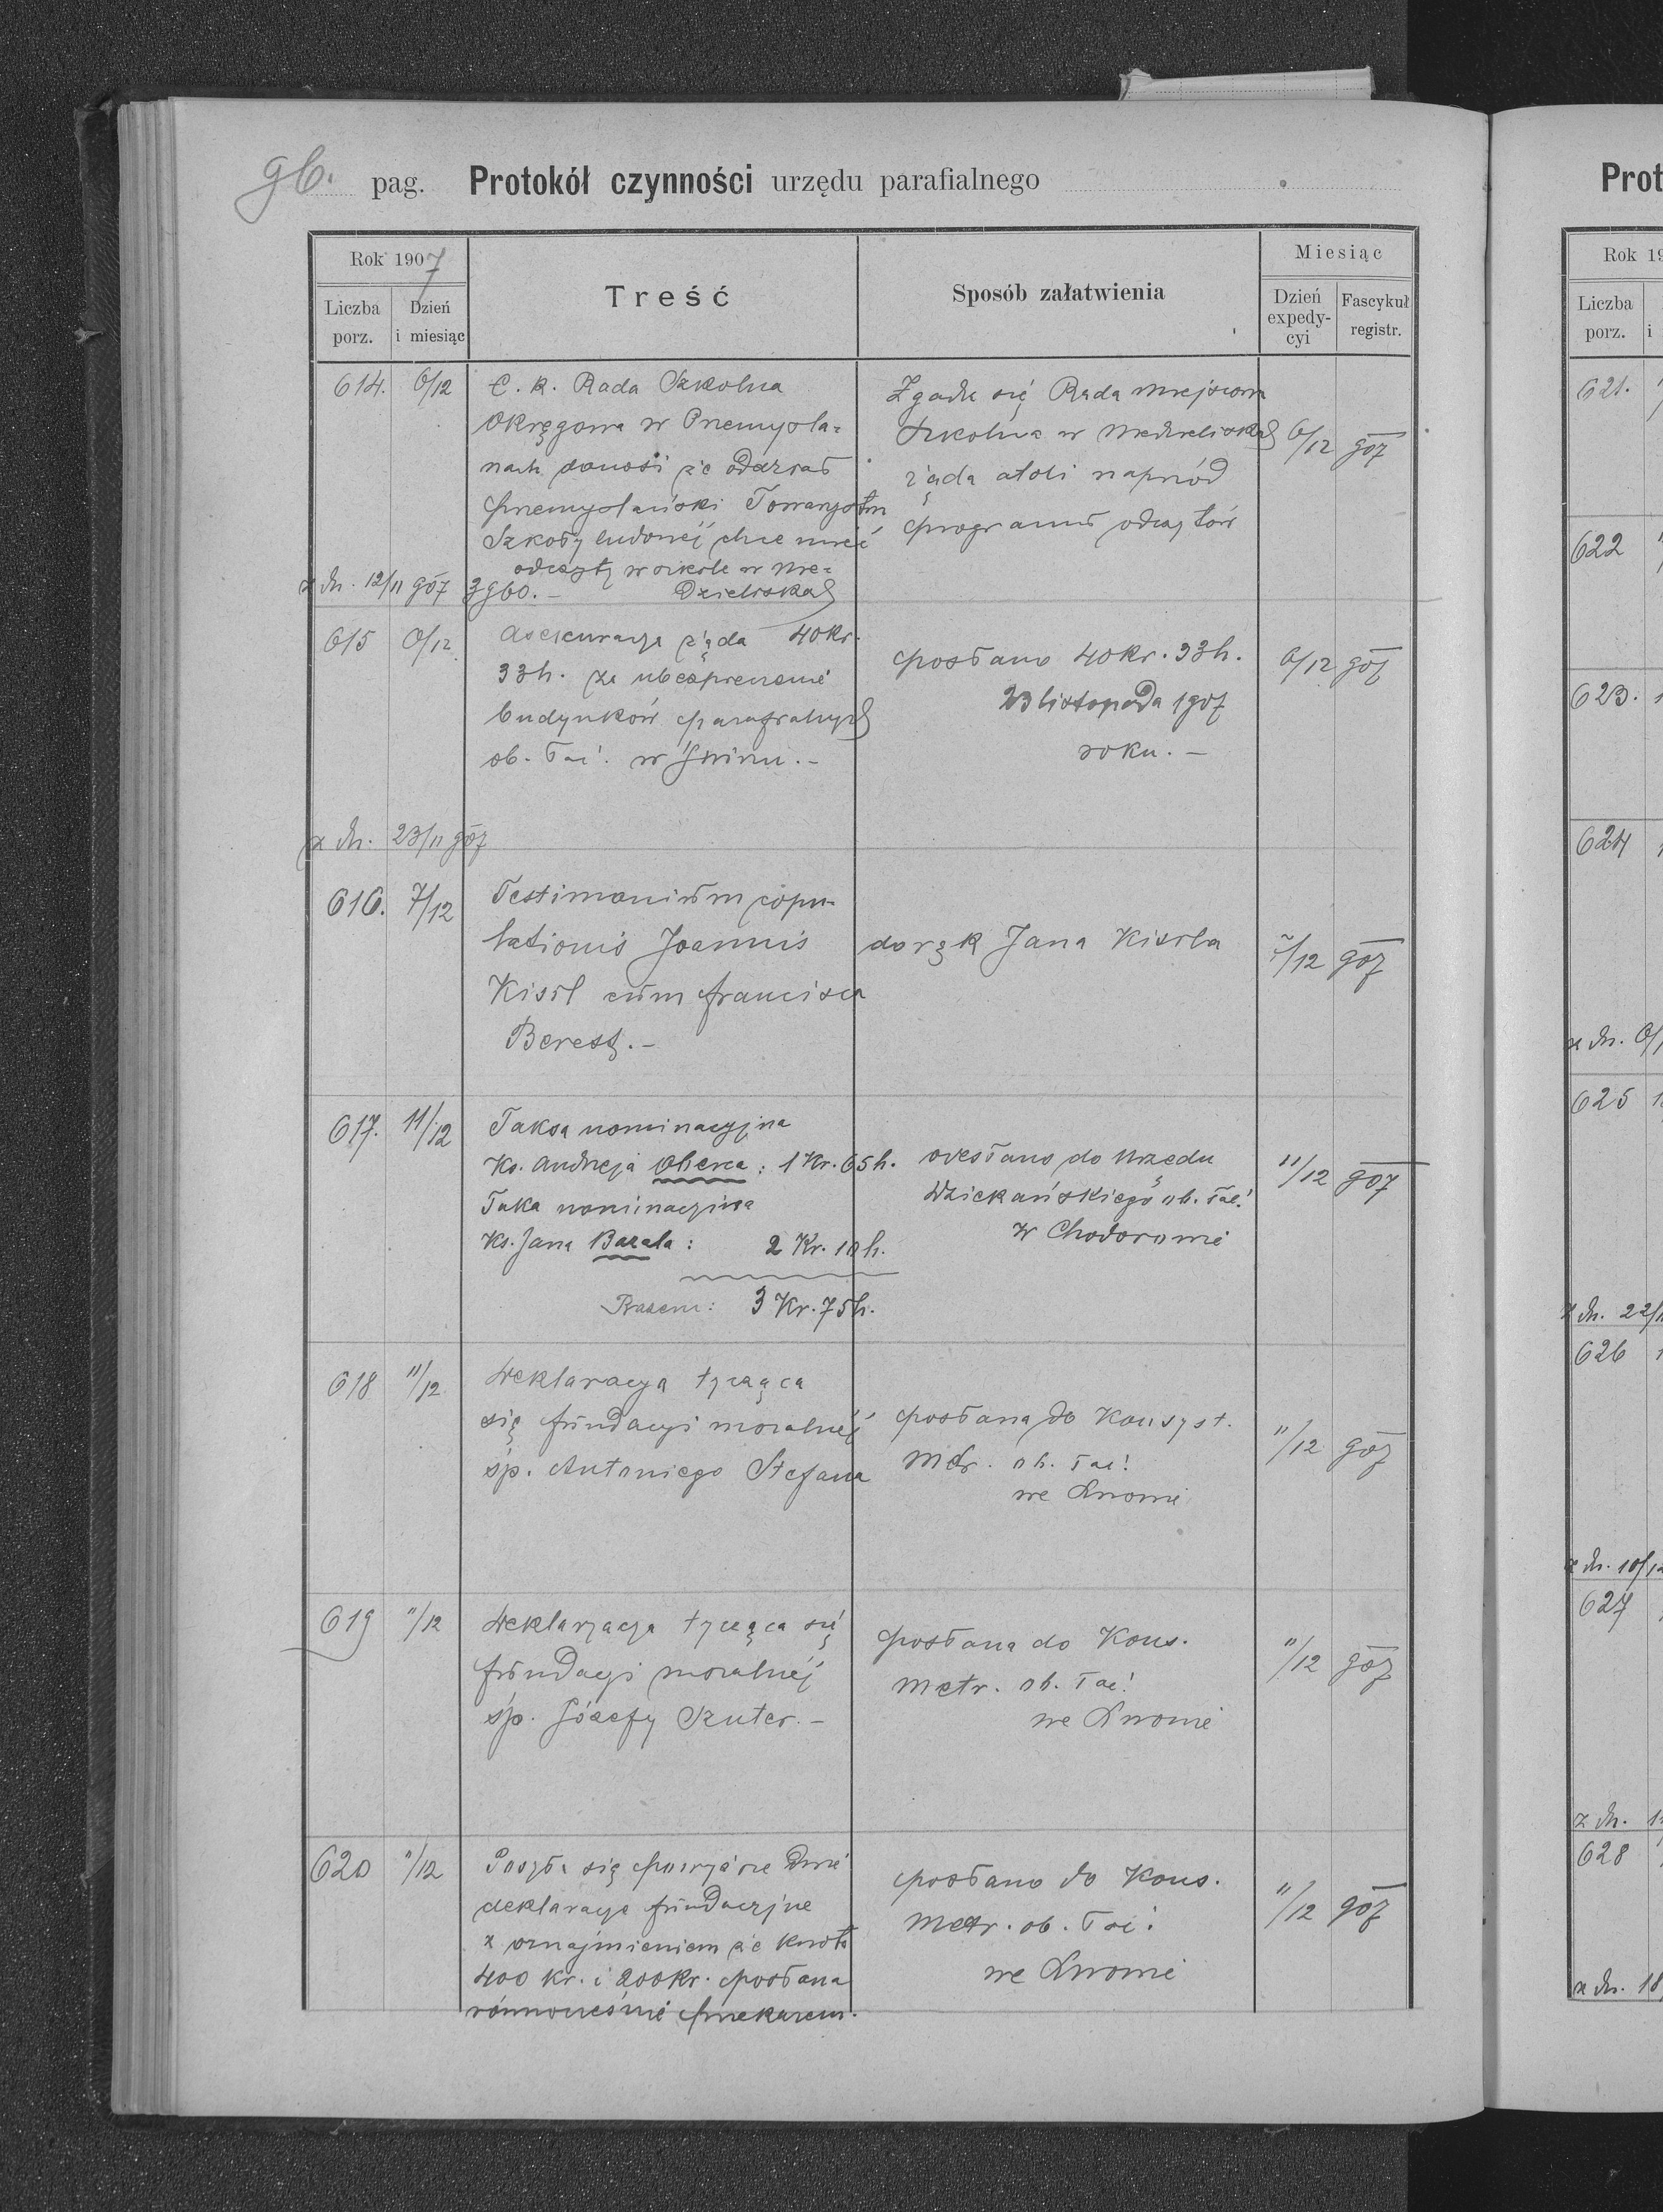 96. pag. Protokół czynności urzędu parafialnego
Rok 1907
Liczba porz.
Dzień i miesiąc
Treść
Sposób załatwienia
Miesiąc
Dzień expedy-cyi
Fascykuł registr.
614. 6/12
C. k. Rada Szkolna
Okręgowa w Przemyśla=
nach donosi że oddział
przemyślański Towarzystw
Szkoły ludowéj chce mieć
odczyty w szkole w Mie=
z dn. 12/11 907 3960.- dzieliskach
Zgadza się Rada miejscowa
Szkolna w Medzieliskach
żąda atoli naprzód
programu odczytów
6/12 907
615 6/12
Asekuracya żąda 40 kr.
33h. za ubezpieczenie
budynków parafialnych
ob. łać. w Świrzu.-
z dn. 23/11 907
posłano 40kr. 33h.
23 listopada 1907
roku.-
6/12 907
616. 7/12
Testimonium copu-
lationis Joannis
Kisil cum Francisca
Berest.-
do rąk Jana Kisila
7/12 907
617. 11/12
Taksa nominacyjna
Ks. Andrzeja Oberca: 1 Kr. 65h.
Taka nominacyjna
Ks. Jana Bazala: 2 Kr. 10h.
Razem: 3 Kr. 75h.
odesłano do Urzędu
Dziekańskiego ob. łać.
w Chodorowie
11/12 907
618 11/12
Deklaracya tycząca
się fundacyi moralnéj
śp. Antoniego Stefana
posłana do Konsyst.
Metr. ob. łać.
we Lwowie
11/12 907
619 11/12
Deklaracya tycząca się
fundacyi moralnéj
śp. Józefy Szuter.-
posłana do Kons.
Metr. ob. łać.
we Lwowie
11/12 907
620 11/12
Posyła się powyższe dwie
deklaracye fundacyjne
z oznajmieniem że kwota
400 kr. i 200kr. posłana
równocześnie przekazem.
posłano do Kons.
Metr. ob. łać.
we Lwowie
11/12 907
Prot
Rok 19
Liczba porz.
i
621.
622
623.
624
z dn. 6/1
625
z dn. 22/11
626
z dn. 10/12
627
z dn. 1
628
z dn. 18